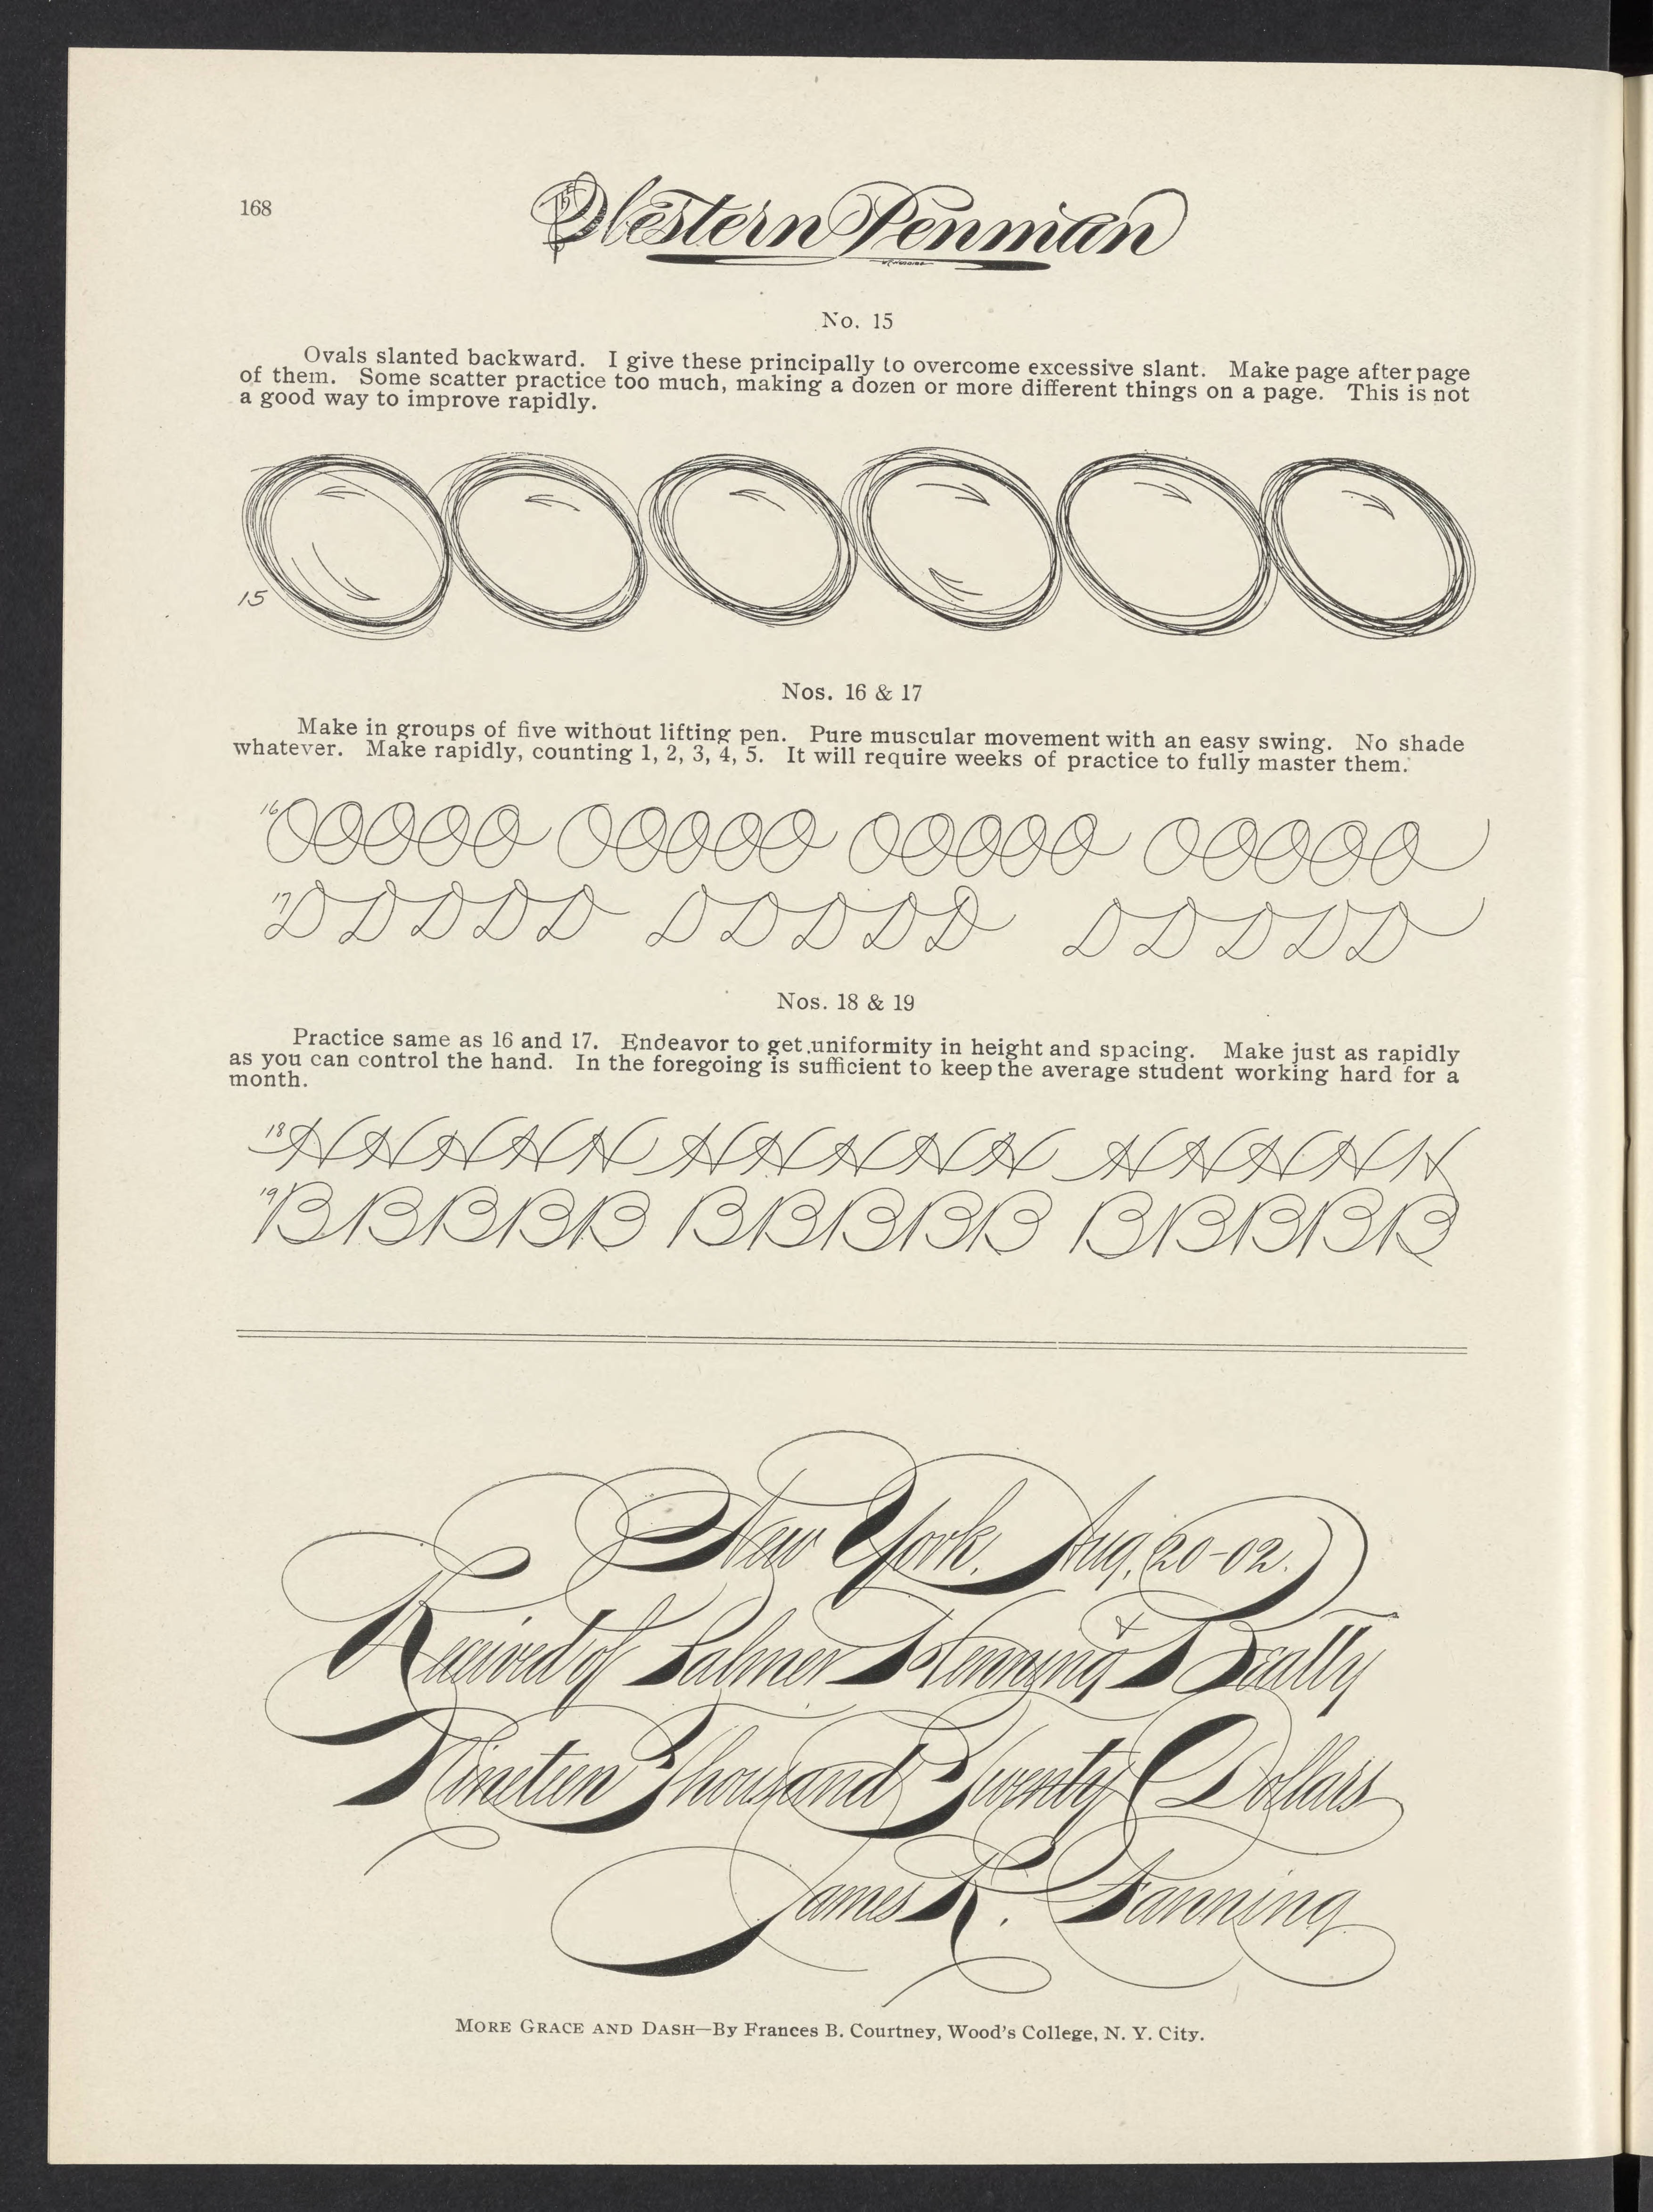 168
Western Penman
No. 15
Ovals slanted backward. I give these principally to overcome excessive slant. Make page after page
of them. Some scatter practice too much, making a dozen or more different things on a page. This is not
a good way to improve rapidly.
15
Nos. 16 & 17
Make in groups of five without lifting pen. Pure muscular movement with an easy swing. No shade
whatever. Make rapidly, counting 1, 2, 3, 4, 5. It will require weeks of practice to fully master them.
16 OOOOO OOOOO OOOOO OOOOO
17 DDDDD DDDDD DDDDD
Nos. 18 & 19
Practice same as 16 and 17. Endeavor to get uniformity in height and spacing. Make just as rapidly
as you can control the hand. In the foregoing is sufficient to keep the average student working hard for a
month.
18
19 BBBBB BBBBB BBBBB
New York, Aug, 20-02.
Received of Palmer Henning & Beatty
Nineteen Thousand Twenty Dollars
James R. Fanning
MORE GRACE AND DASH—By Frances B. Courtney, Wood's College, N. Y. City.